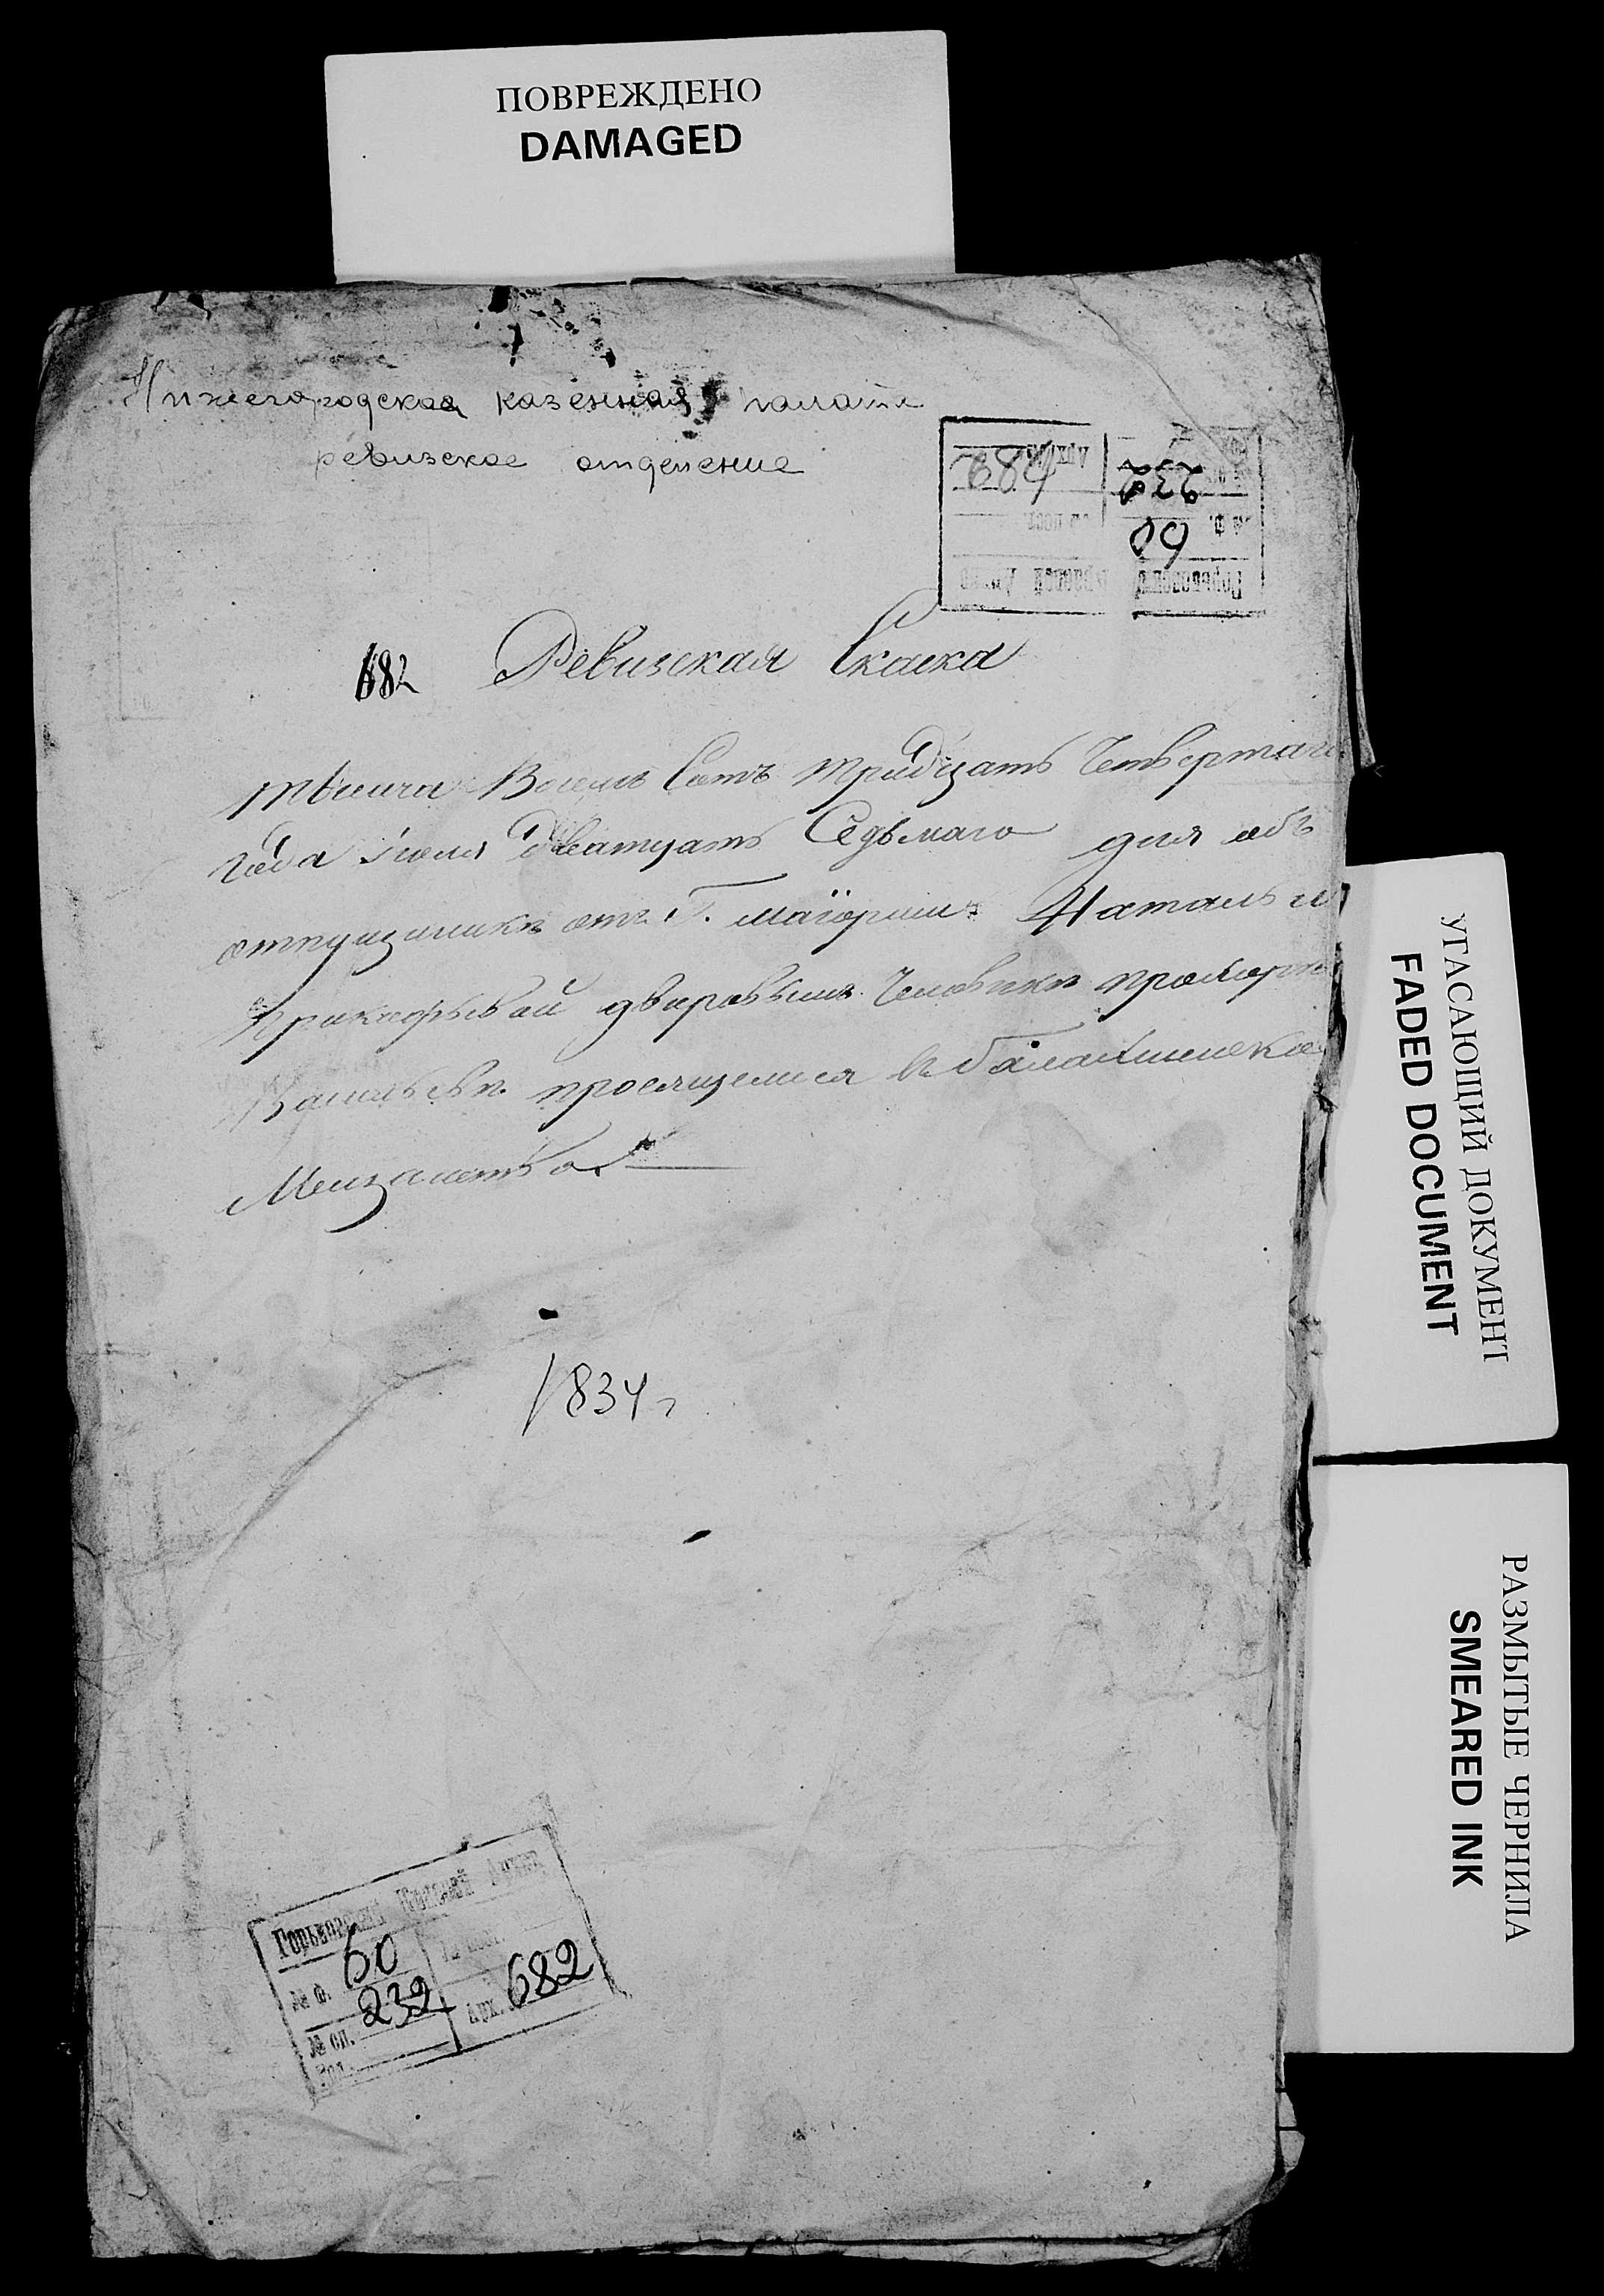 ПОВРЕЖДЕНО
DAMAGED
Нижегородская казенная палата
ревизское отделение
682
60
232
682 Ревизская Скаска
тысяча Восемь Сотъ тридцать Четвертаго
года июля дватцать Седьмаго дня объ
отпущенникѣ отъ Г. маіорши Натальи
Прикафьевой дворовымъ Человѣкѣ прохоре
Васильевѣ просящемся въ балахнинское
Мещанство
1834 г
Горьковский Краевой Архив
№ ф. 60
№ оп. 232
Арх. 682
УГАСАЮЩИЙ ДОКУМЕНТ
FADED DOCUMENT
РАЗМЫТЫЕ ЧЕРНИЛА
SMEARED INK